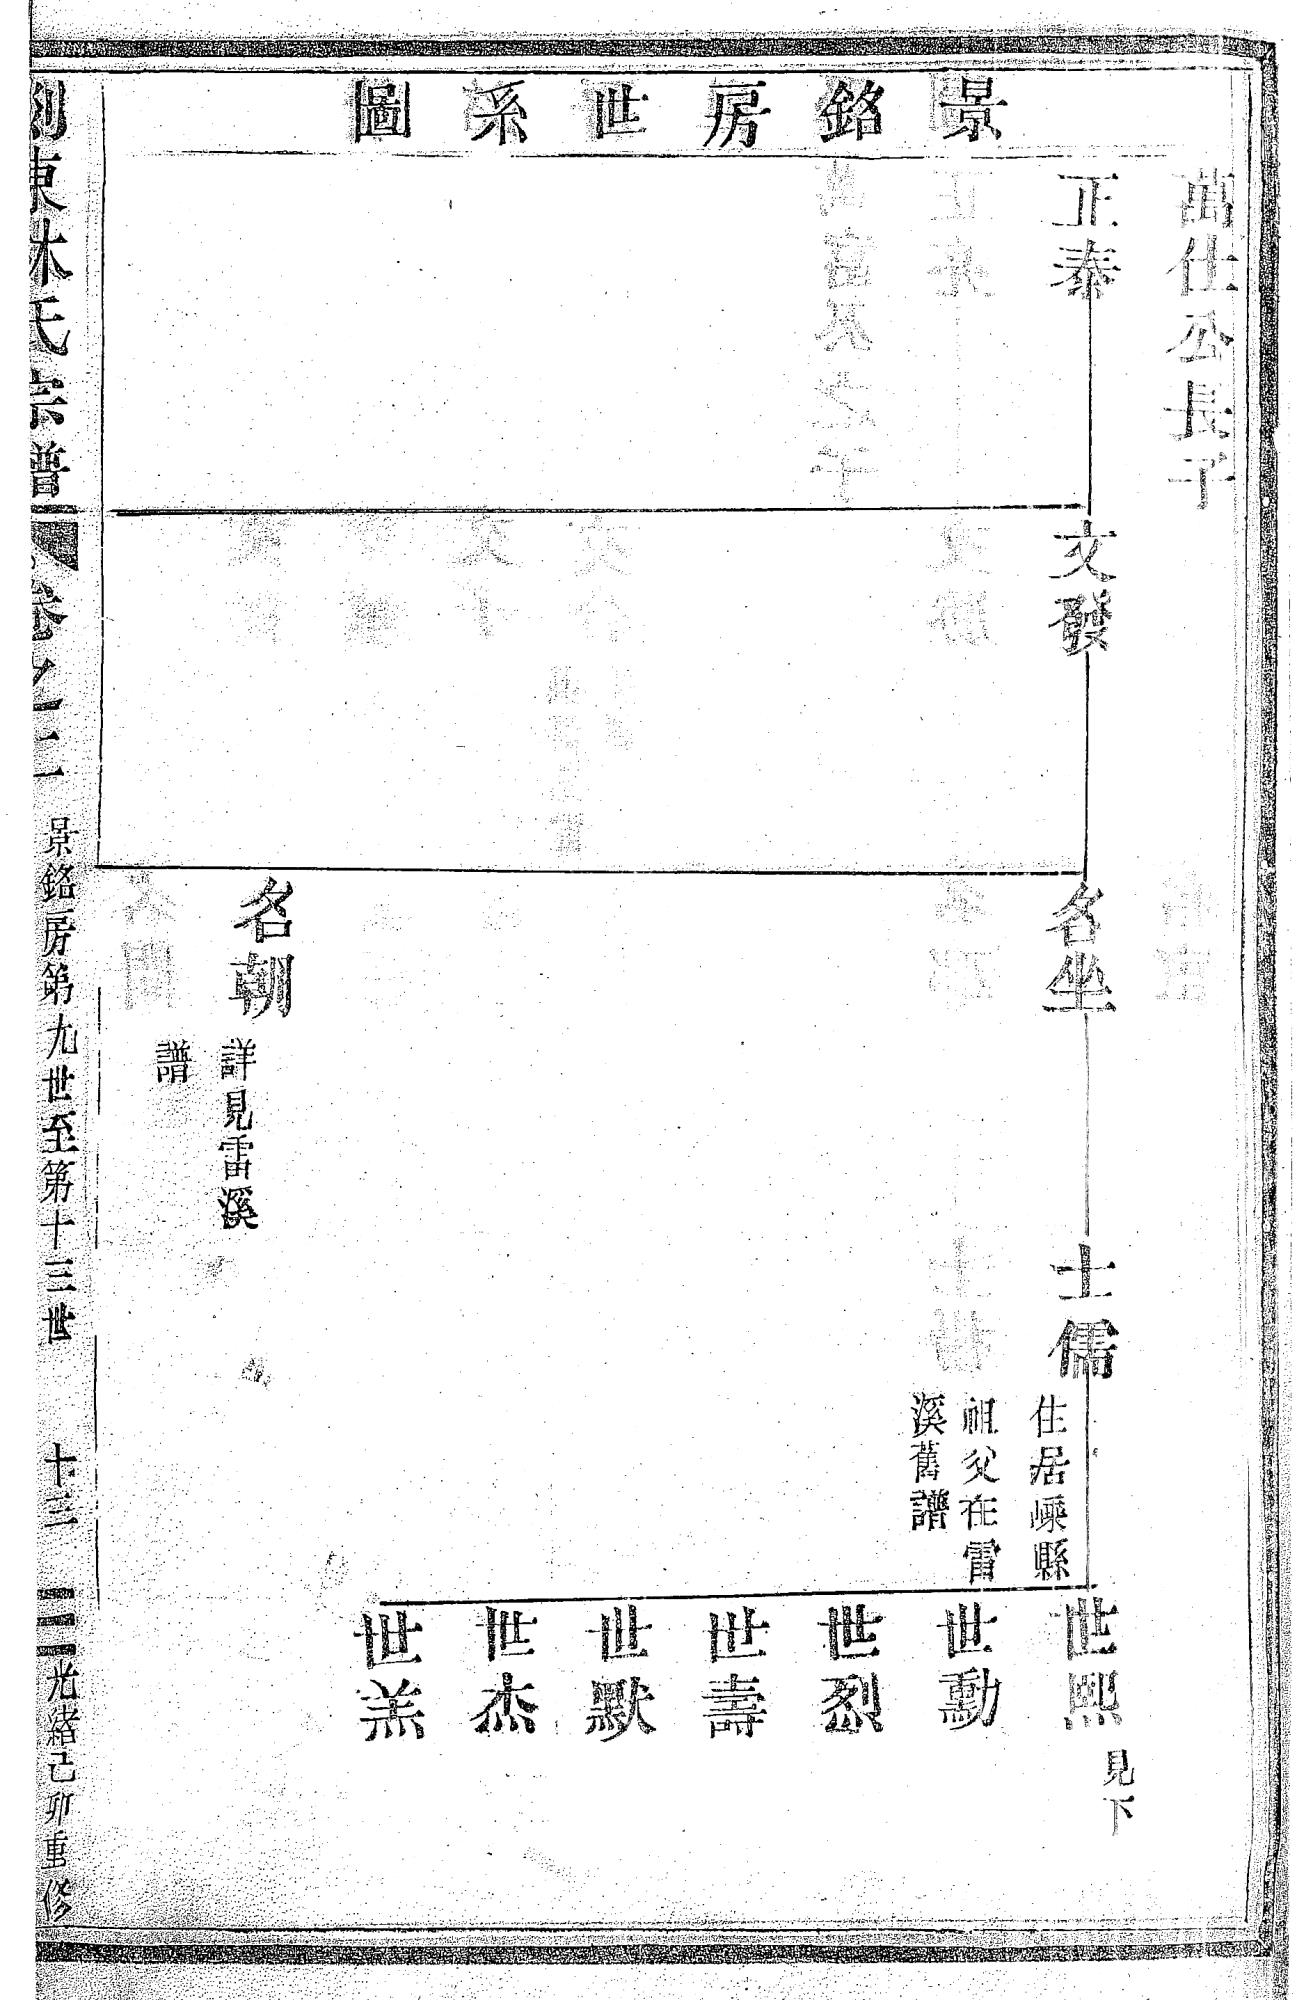 景銘房世系圖
萬仕公長子
正泰
文發
名坐
士儒
住居嵊縣
祖父在雷
溪舊譜
世熙
見下
世勳
世烈
世壽
世默
世杰
世羔
名朝
詳見雷溪
譜
剡東林氏宗譜
卷之二
景銘房第九世至第十三世
十三
光緒己卯重修